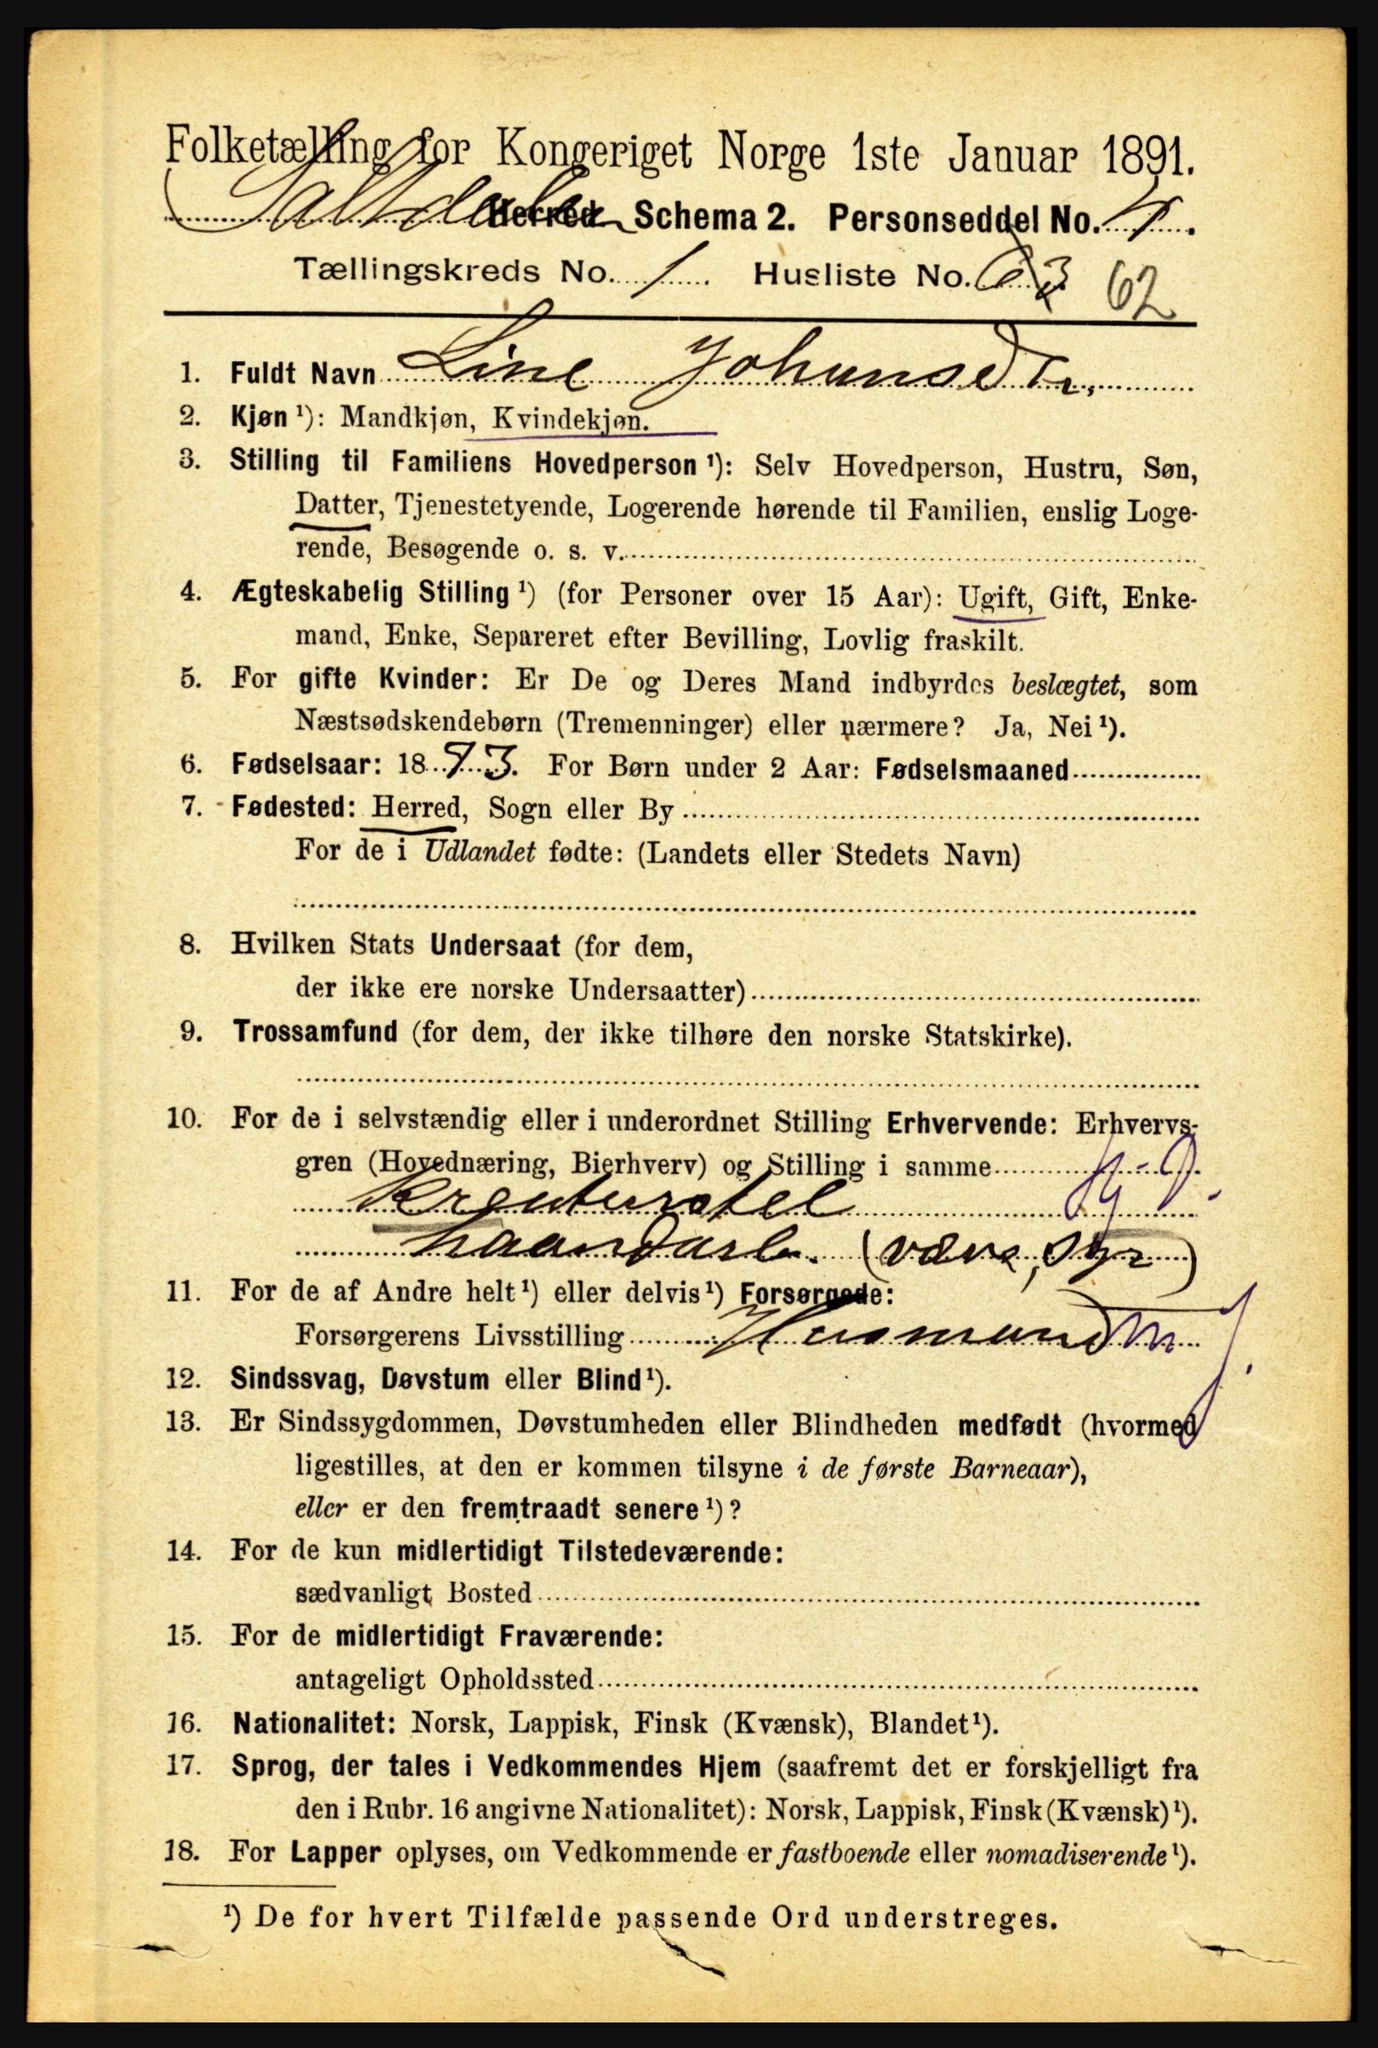 Folketælling for Kongeriget Norge 1ste Januar 1891.
Saltdalen Herred Schema 2. Personseddel No. 4.
Tællingskreds No. 1. Husliste No. 63 62
1. Fuldt Navn Line Johansdtr.
2. Kjøn ¹): Mandkjøn, Kvindekjøn.
3. Stilling til Familiens Hovedperson ¹): Selv Hovedperson, Hustru, Søn,
Datter, Tjenestetyende, Logerende hørende til Familien, enslig Loge-
rende, Besøgende o. s. v.
4. Ægteskabelig Stilling ¹) (for Personer over 15 Aar): Ugift, Gift, Enke-
mand, Enke, Separeret efter Bevilling, Lovlig fraskilt.
5. For gifte Kvinder: Er De og Deres Mand indbyrdes beslægtet, som
Næstsødskendebørn (Tremenninger) eller nærmere? Ja, Nei ¹).
6. Fødselsaar: 1873. For Børn under 2 Aar: Fødselsmaaned
7. Fødested: Herred, Sogn eller By
For de i Udlandet fødte: (Landets eller Stedets Navn)
8. Hvilken Stats Undersaat (for dem,
der ikke ere norske Undersaatter)
9. Trossamfund (for dem, der ikke tilhøre den norske Statskirke).
10. For de i selvstændig eller i underordnet Stilling Erhvervende: Erhvervs-
gren (Hovednæring, Bierhverv) og Stilling i samme
Kreaturstel
haandarb. (væve, sye)
11. For de af Andre helt ¹) eller delvis ¹) Forsørgede:
Forsørgerens Livsstilling Husmand m. J.
12. Sindssvag, Døvstum eller Blind ¹).
13. Er Sindssygdommen, Døvstumheden eller Blindheden medfødt (hvormed
ligestilles, at den er kommen tilsyne i de første Barneaar),
eller er den fremtraadt senere ¹)?
14. For de kun midlertidigt Tilstedeværende:
sædvanligt Bosted
15. For de midlertidigt Fraværende:
antageligt Opholdssted
16. Nationalitet: Norsk, Lappisk, Finsk (Kvænsk), Blandet ¹).
17. Sprog, der tales i Vedkommendes Hjem (saafremt det er forskjelligt fra
den i Rubr. 16 angivne Nationalitet): Norsk, Lappisk, Finsk (Kvænsk) ¹).
18. For Lapper oplyses, om Vedkommende er fastboende eller nomadiserende ¹).
¹) De for hvert Tilfælde passende Ord understreges.